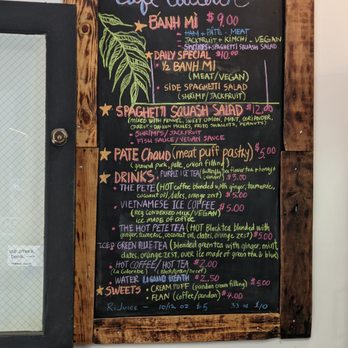 BANH MI $9.00
- HAM + PATE - MEAT
- JACKFRUIT + KIMCHI - VEGAN
SPAGHETTI SQUASH SALAD
DAILY SPECIAL $10.00
- ½ BANH MI
(MEAT/VEGAN)
- SIDE SPAGHETTI SALAD
(SHRIMP/JACKFRUIT)
SPAGHETTI SQUASH SALAD $12.00
(MIXED WITH FENNEL, SWEET ONION, MINT, CORIANDER,
CARROT + DAIKON PICKLES, FRIED SHALLOTS, PEANUTS)
- SHRIMPS/JACKFRUIT
- FISH SAUCE/VEGAN SAUCE
PATE Chaud (meat puff pastry) $5.00
(ground pork, pate, onion filling)
DRINKS PURPLE ICE TEA
$3.00
- THE PETE (HOT coffee blended with ginger, turmeric,
coconut oil, dates, orange zest) $5.00
- VIETNAMESE ICE COFFEE $5.00
(REG CONDENSED MILK/VEGAN)
ICE MADE OF COFFEE
- THE HOT PETE TEA (HOT Black tea blended with
ginger, turmeric, coconut oil, dates, orange zest) $5.00
ICED GREEN BLUE TEA (blended green tea with ginger, mint,
dates, orange zest, over ice made of green tea & blue)
- HOT COFFEE/HOT TEA $2.00
(La Colombe)
- WATER LIQUID DEATH $2.50
SWEETS - CREAM PUFF (vanilla/pandan) $5.00
- FLAN (coffee/pandan) $4.00